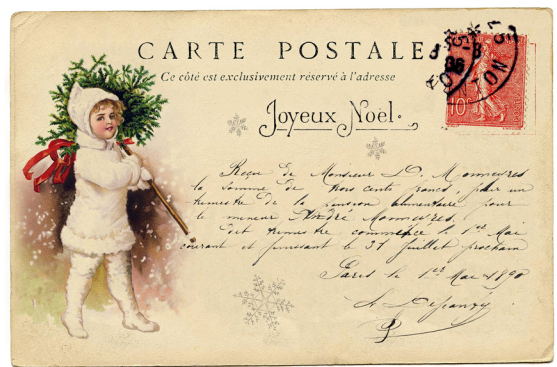 CARTE POSTALE
Ce côté est exclusivement réservé à l'adresse
Joyeux Noël.
Reçu de Monsieur D. Monneures
la somme de trois cents francs, pour un
trimestre de la pension alimentaire pour
le mineur André Monneures.
Dit trimestre commence le 1er Mai
courant et finissant le 31 Juillet prochain
Paris le 1er Mai 1890
10c